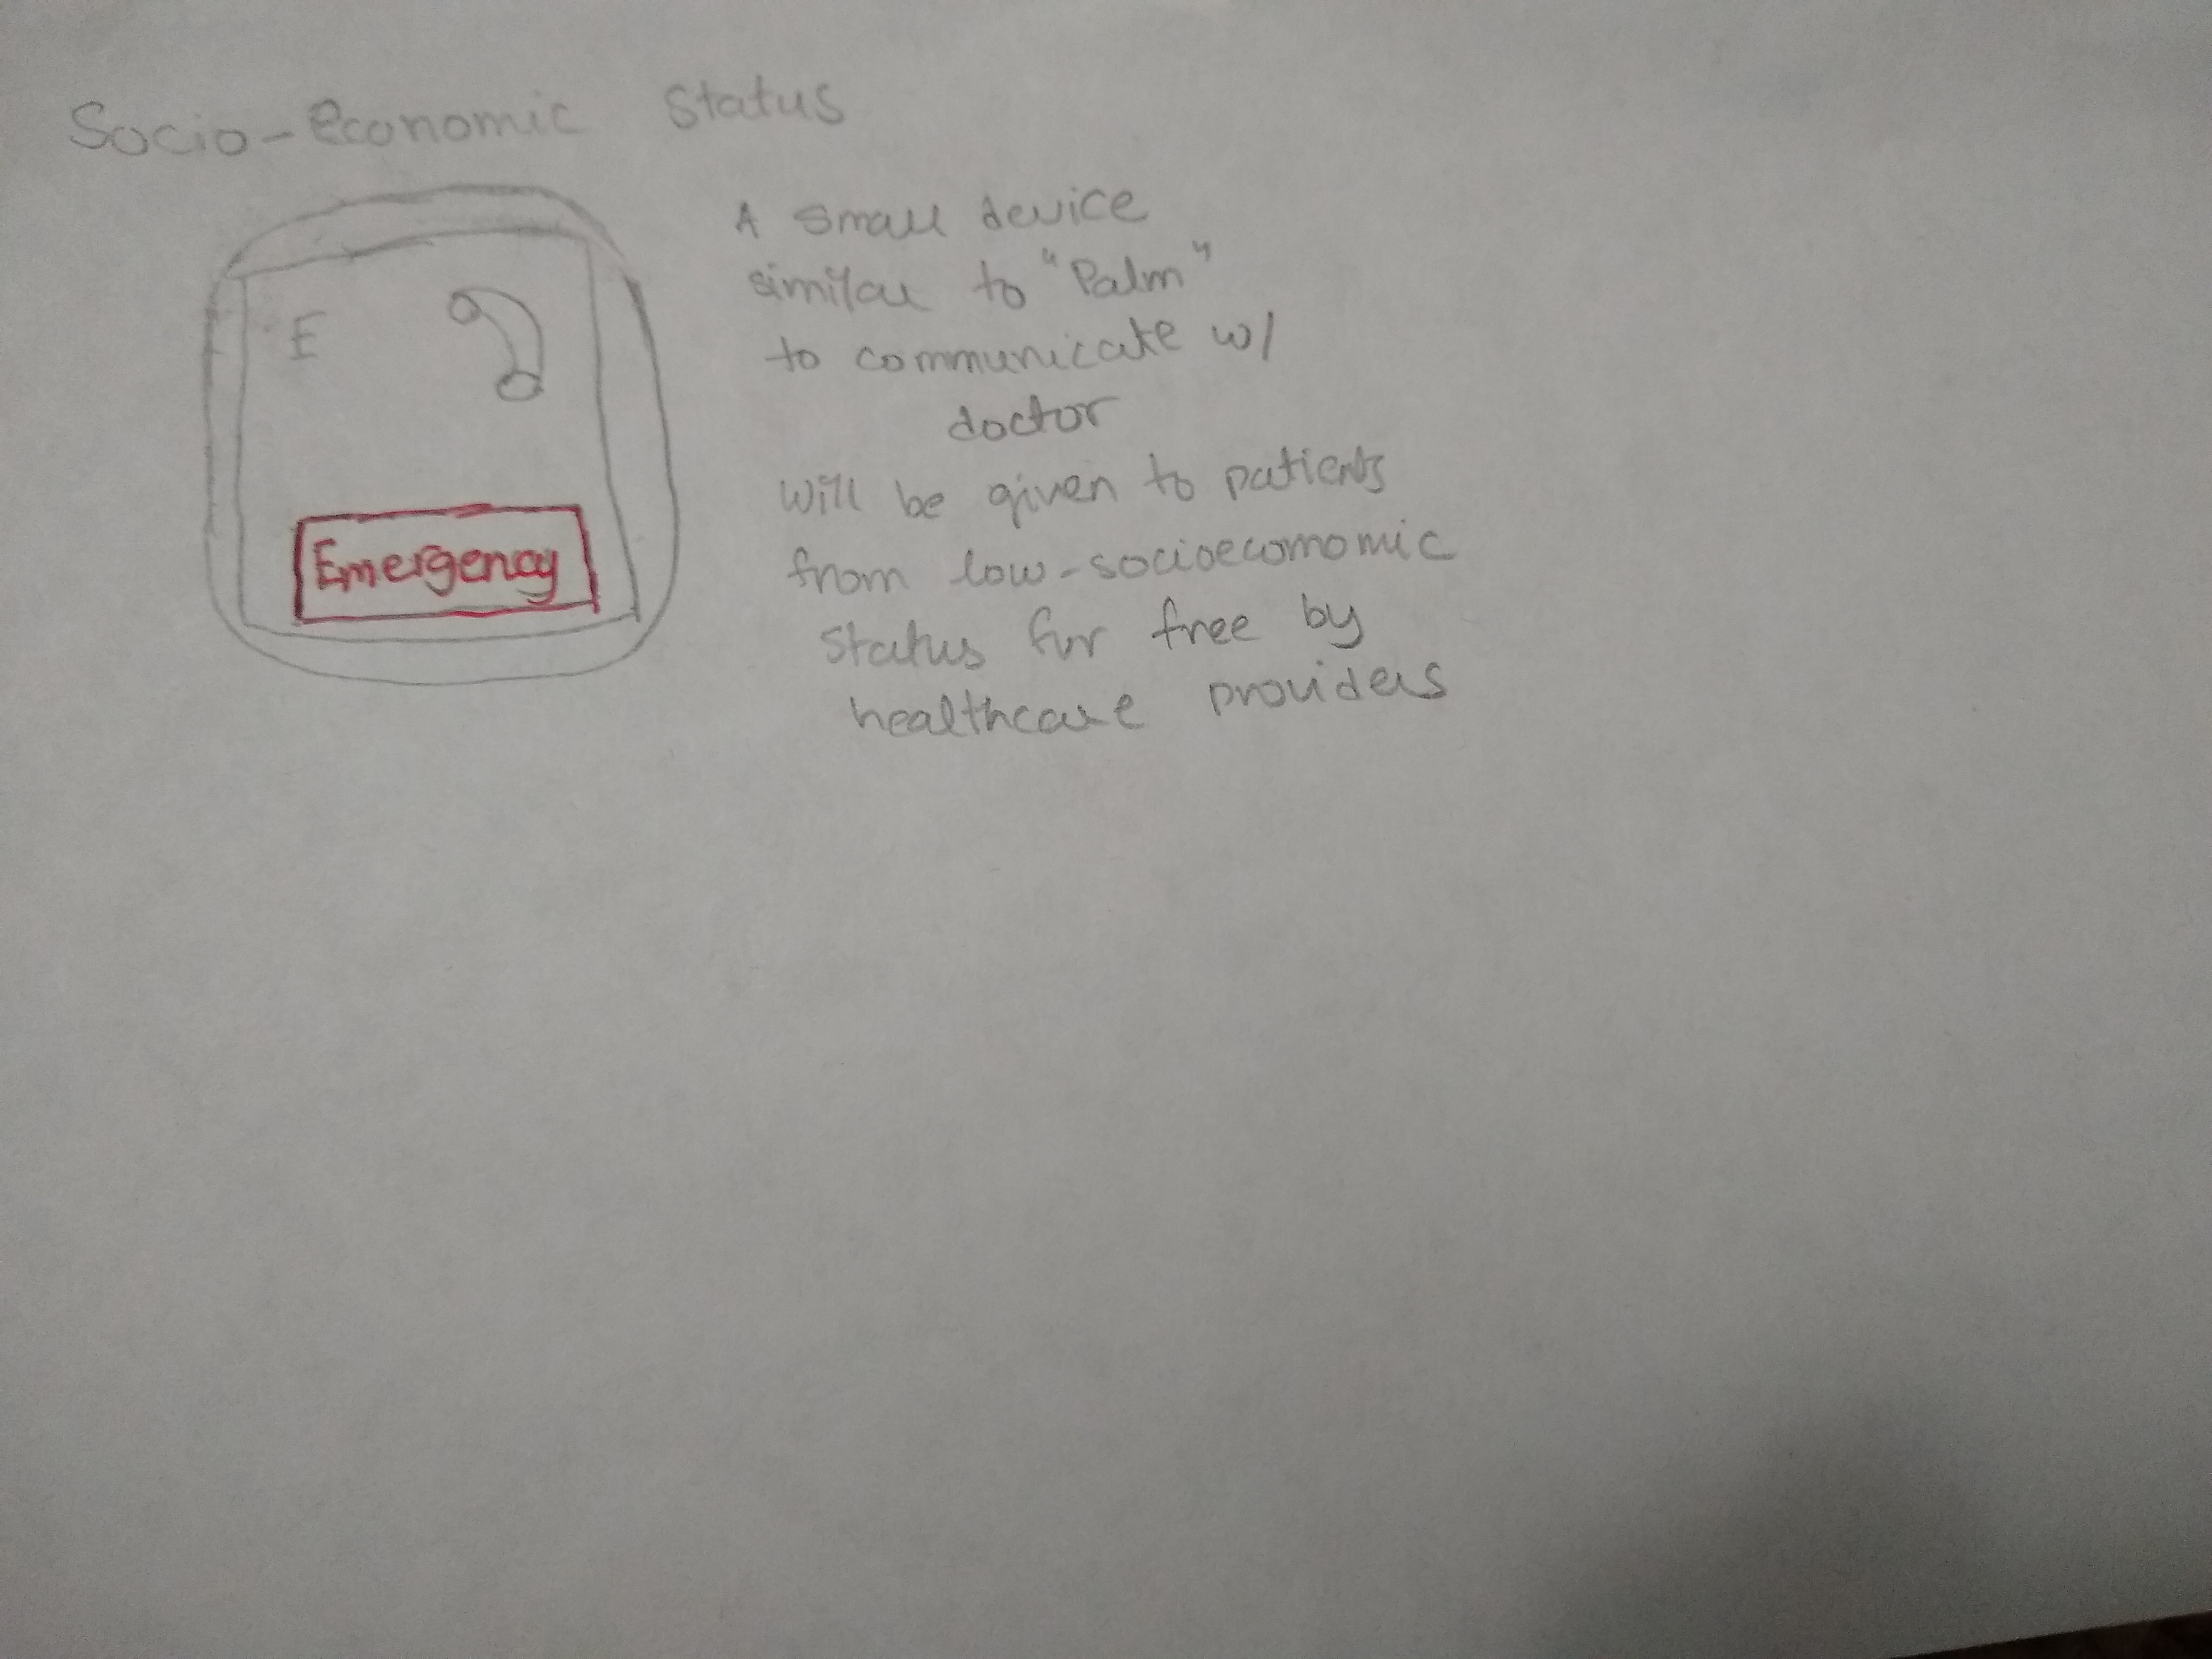 Socio-economic Status
A small device
similar to "Palm"
to communicate w/
doctor
will be given to patients
from low-socioecomomic
status for free by
healthcare providers
E
Emergency